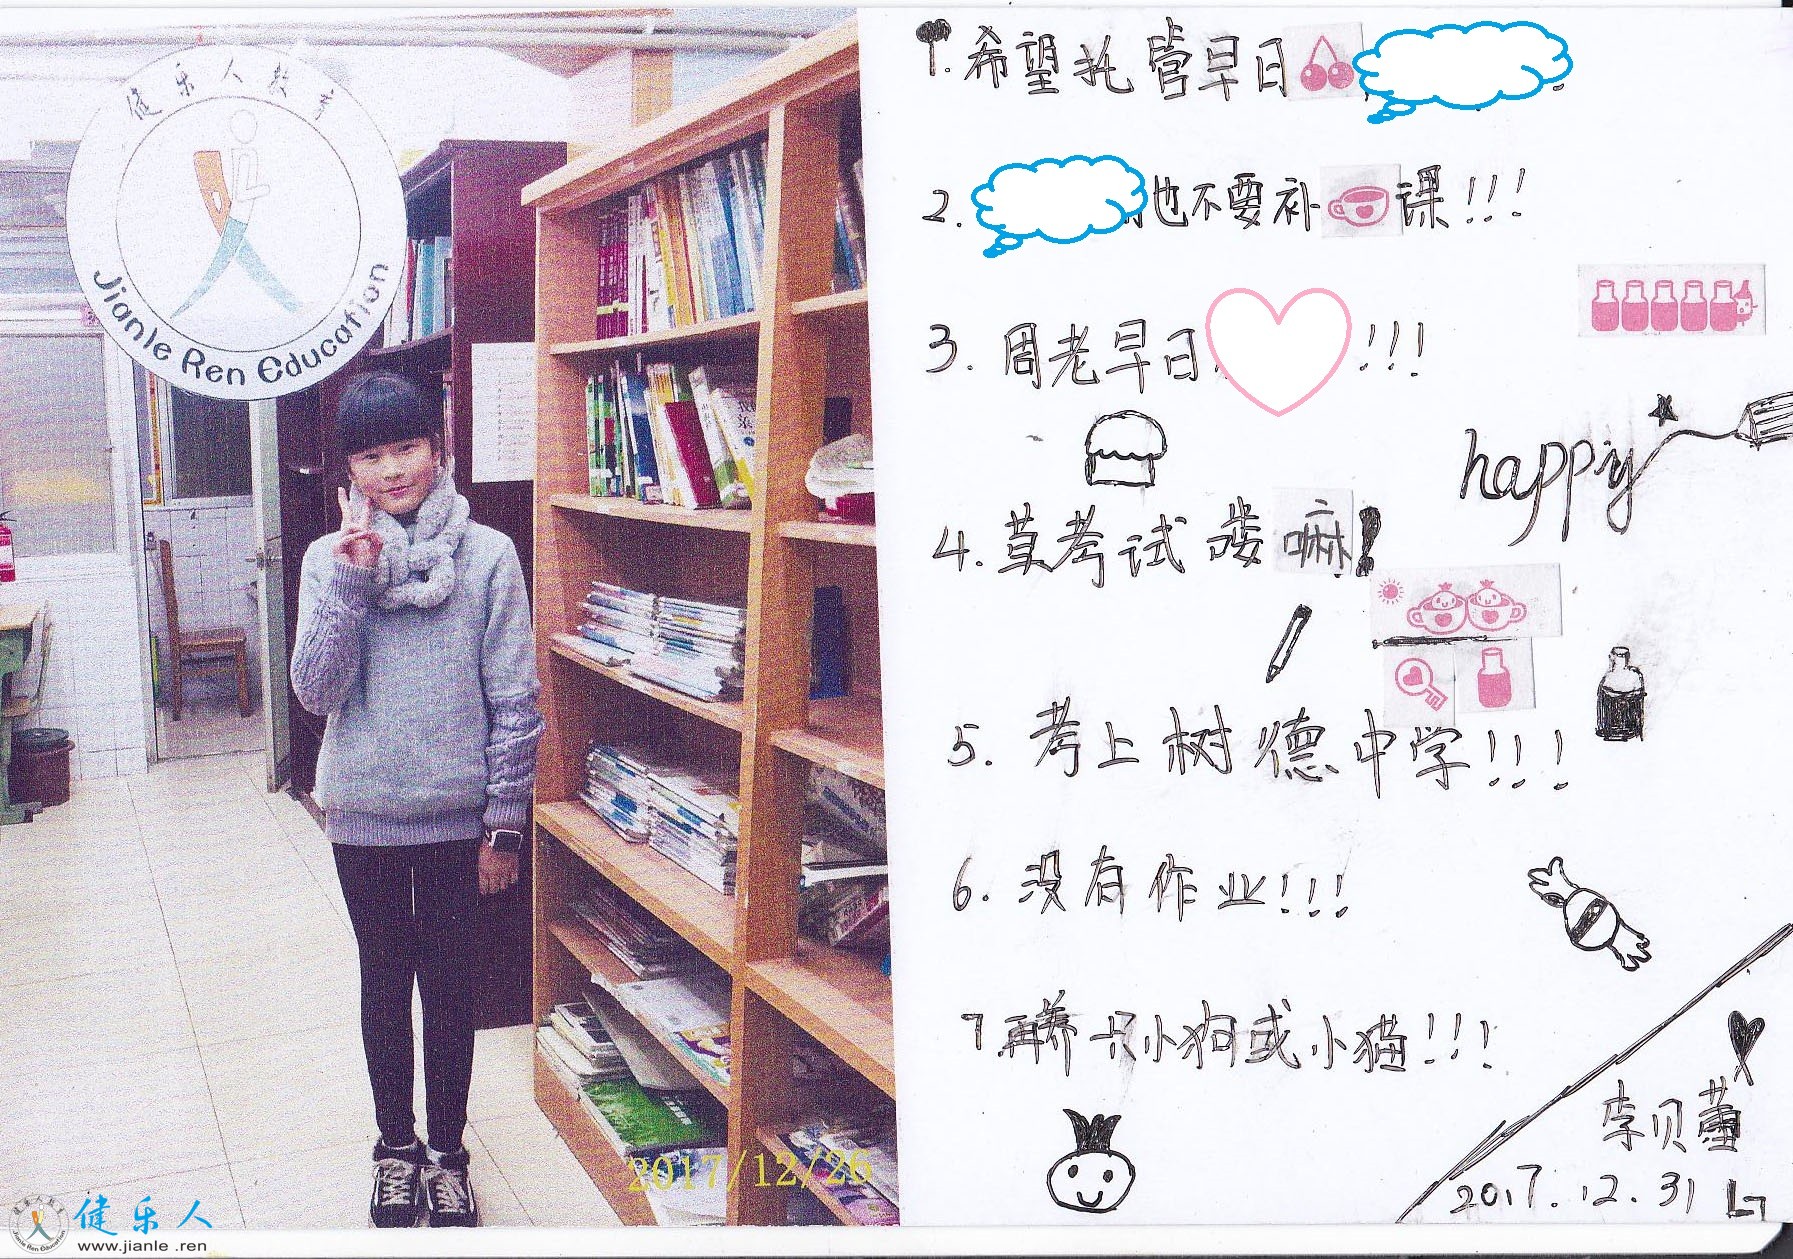 健乐人教育
Jianle Ren Education
2017/12/26
健乐人
www.jianle.ren
1.希望托管早日
2.也不要补课!!!
3.周老早日!!!
happy
4.草考试喽嘛!
5.考上树德中学!!!
6.没有作业!!!
7.再养一只小狗或小猫!!!
李贝
2017.12.31